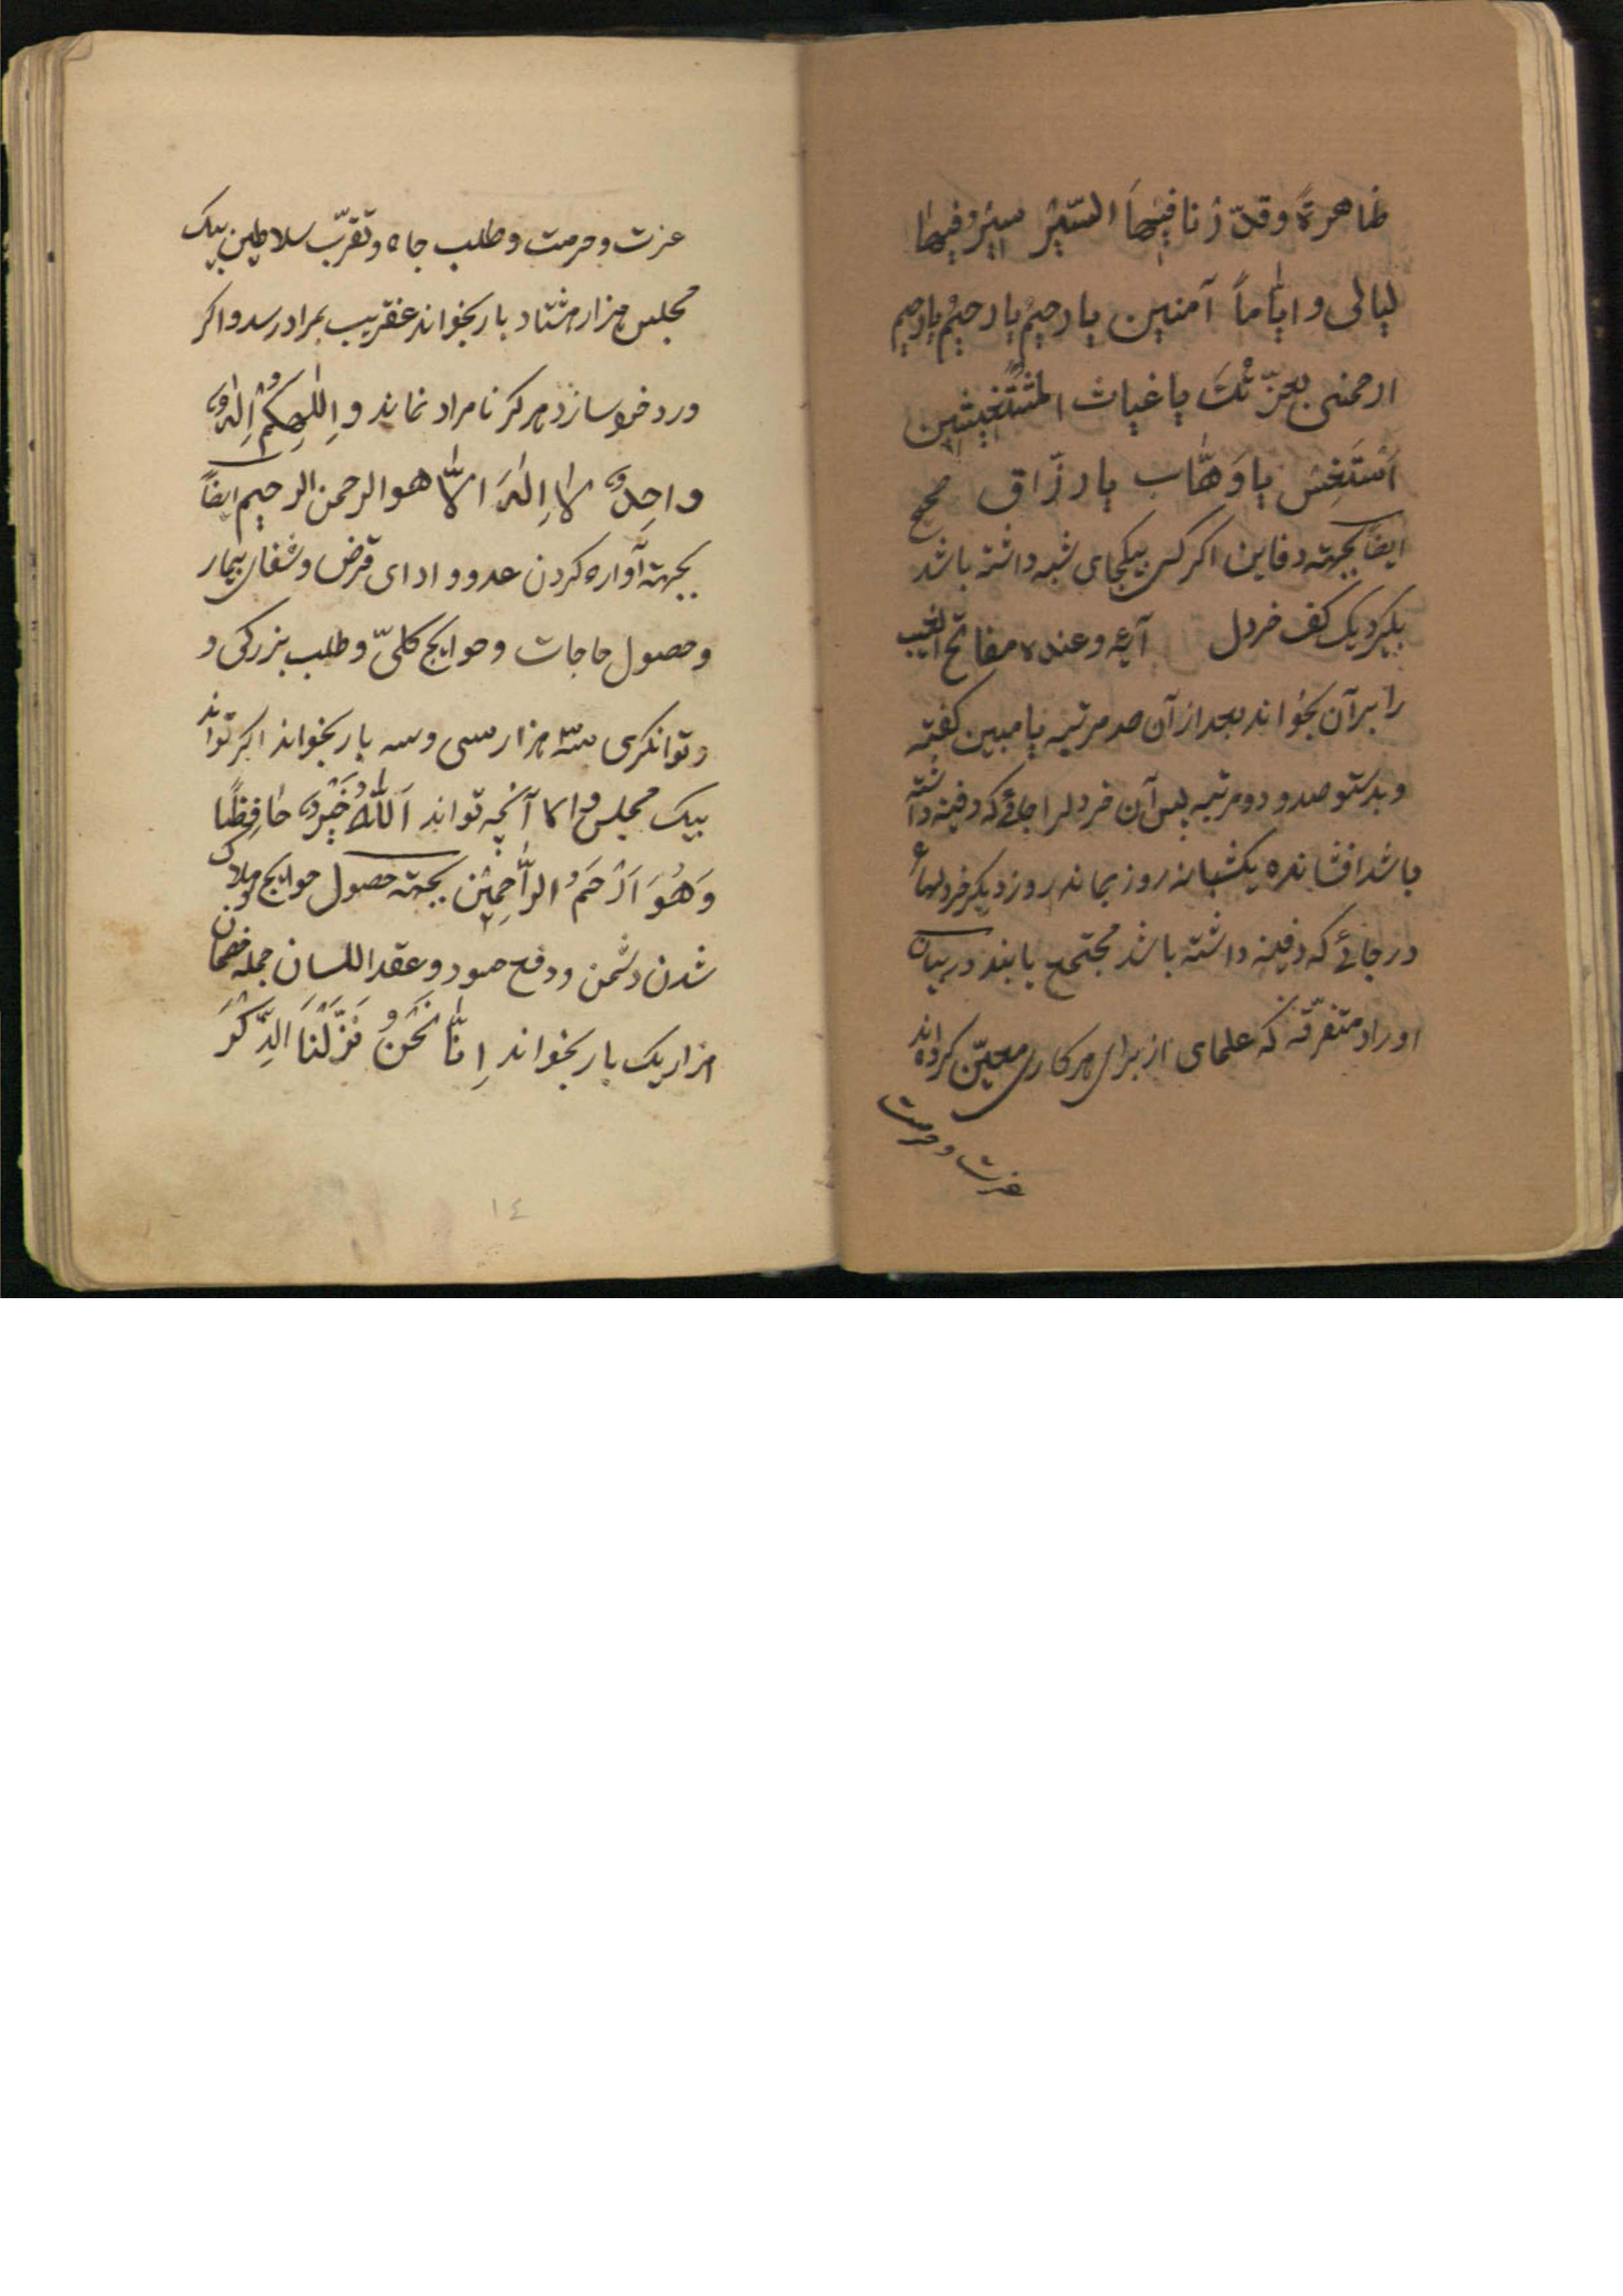 ظاهرةً وقدّرنا فیهاَ السّیرْ سیرْوفیها
لیالی وایّاماً آمنین یا رحیمُ یا رحیمُ یا رحیم
ارحمنی بعزّتكَ یا غیاث المُسْتَغیثین
اَسْتَغِیْ یا وَهّاب یا رزّاق صحیح
ایضاً بجهته دفاین اکر کسی بیکجای شبه داشته باشد
بکیرد یک کف خردل آیه وعنده مفاتح الغیب
را برآن بخواند بعد از آن صد مرتبه یا مبین کفته
وبدستو صد و دو مرتبه پس آن خردلرا جائے که دفینه داشته
باشد افشانده یکشبانه روز بماند روز دیکر خردلها
در جائے که دفینه داشته باشد مجتمع یابند در بیان
اوراد متفرّقه که علمای از برای هرکاری معیّن کرده اند
عزت و حرمت
عزت و حرمت و طلب جاه و تقرّب سلاطین بیک
مجلس هزار هشتاد بار بخواند عنقریب بمراد رسد واکر
ورد خود سازد هرکز نامراد نماند وَاِلٰهِکُمْ اِلٰهٌ
واحِدٌ لاٰ اِلٰهَ الاّٰ هو الرحمن الرحیم ایضاً
بجهته آواره کردن عدو و ادای قرض و شفای بیمار
و حصول حاجات و حوایج کلیّ و طلب بزرکی و
و توانکری سه هزار سی و سه بار بخواند اکر تواند
بیک مجلس والا آنچه تواند اَللّٰهُ خَیْرٌ حٰافِظًا
وَهُوَ اَرْحَمُ الرّٰاحِمِیْن بجهته حصول حوایج و هلاک
شدن دشمن و دفع حسود و عقد اللسان جمله خصمان
هزار یک بار بخواند اِنّٰا نَحْنُ نَزَّلْنَا الذِّکْرَ
١٤